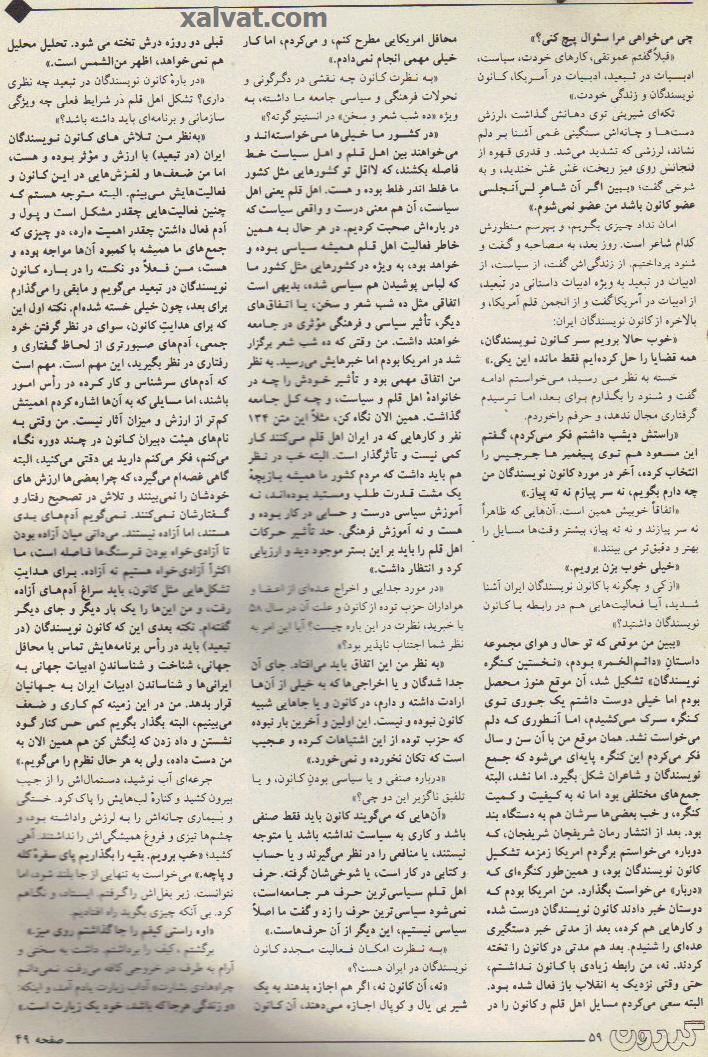 xalvat.com
چی می‌خواهی مرا سئوال پیچ کنی؟»
«قبلاً گفتم عمونقی، کارهای خودت، سیاست،
ادبیات در تبعید، ادبیات در آمریکا، کانون
نویسندگان و زندگی خودت.»
تکه‌ای شیرینی توی دهانش گذاشت، لرزش
دست‌ها و چانه‌اش سنگینی غمی آشنا بر دلم
نشاند، لرزشی که تشدید می‌شد. و قدری قهوه از
فنجانش روی میز ریخت، غش غش خندید، و به
شوخی گفت؛ «ببین اگر آن شاعر لس‌آنجلسی
عضو کانون باشد من عضو نمی‌شوم.»
امان نداد چیزی بگویم، و بپرسم منظورش
کدام شاعر است. روز بعد، به مصاحبه و گفت و
شنود پرداختیم. از زندگی‌اش گفت، از سیاست، از
ادبیات در تبعید به ویژه ادبیات داستانی در تبعید،
از ادبیات در آمریکا گفت و از انجمن قلم آمریکا، و
بالاخره از کانون نویسندگان ایران:
«خوب حالا برویم سر کانون نویسندگان،
همه قضایا را حل کرده‌ایم فقط مانده این یکی.»
خسته به نظر می رسید، می‌خواستم ادامه
گفت و شنود را بگذارم برای بعد، اما ترسیدم
گرفتاری مجال ندهد، و حرفم را خوردم.
«راستش دیشب داشتم فکر می‌کردم، گفتم
این مسعود هم توی پیغمبر ها جرجیس را
انتخاب کرده، آخر در مورد کانون نویسندگان من
چه دارم بگویم، نه سر پیازم نه ته پیاز.»
«اتفاقاً خوبیش همین است. آن‌هایی که ظاهراً
نه سر پیازند و نه ته پیاز، بیشتر وقت‌ها مسایل را
بهتر و دقیق‌تر می بینند.»
«خیلی خوب بزن برویم.»
«از کی و چگونه با کانون نویسندگان ایران آشنا
شدید، آیا فعالیت‌هایی هم در رابطه با کانون
نویسندگان داشتید؟»
«ببین من موقعی که تو حال و هوای مجموعه
داستانِ «دائم‌الخمر» بودم، «نخستین کنگره
نویسندگان» تشکیل شد، آن موقع هنوز محصل
بودم اما خیلی دوست داشتم یک جوری توی
کنگره سرک می‌کشیدم، اما آنطوری که دلم
می‌خواست نشد. همان موقع من با آن سن و سال
فکر می‌کردم این کنگره پایه‌ای می‌شود که جمع
نویسندگان و شاعران شکل بگیرد. اما نشد، البته
جمع‌های مختلفی بود اما نه به کیفیت و کمیت
کنگره، و خب بعضی‌ها سرشان هم به دستگاه بند
بود. بعد از انتشار رمان شریفجان شریفجان، که
دوباره می‌خواستم برگردم امریکا زمزمه تشکیل
کانون نویسندگان بود، و همین‌طور کنگره‌ای که
«دربار» می‌خواست بگذارد. من امریکا بودم که
دوستان خبر دادند کانون نویسندگان درست شده
و کارهایی هم کرده، بعد از مدتی خبر دستگیری
عده‌ای را شنیدم. بعد هم مدتی در کانون را تخته
کردند. نه، من رابطه زیادی با کانون نداشتم،
حتی وقتی نزدیک به انقلاب باز فعال شده بود.
البته سعی می‌کردم مسایل اهل قلم و کانون را در
محافل امریکایی مطرح کنم، و می‌کردم، اما کار
خیلی مهمی انجام نمی‌دادم.»
«به نظرت کانون چه نقشی در دگرگونی و
تحولات فرهنگی و سیاسی جامعه ما داشته، به
ویژه «ده شب شعر و سخن» در انستیتو گوته؟»
«در کشور ما خیلی‌ها می‌خواسته‌اند و
می‌خواهند بین اهل قلم و اهل سیاست خط
فاصله بکشند، که لااقل تو کشورهایی مثل کشور
ما غلط اندر غلط بوده و هست. اهل قلم یعنی اهل
سیاست، آن هم معنی درست و واقعی سیاست که
در باره‌اش صحبت کردیم. در هر حال به همین
خاطر فعالیت اهل قلم همیشه سیاسی بوده و
خواهد بود، به ویژه در کشورهایی مثل کشور ما
که لباس پوشیدن هم سیاسی شده، بدیهی است
اتفاقی مثل ده شب شعر و سخن، یا اتفاق‌های
دیگر، تأثیر سیاسی و فرهنگی مؤثری در جامعه
خواهند داشت. من وقتی که ده شب شعر برگزار
شد در امریکا بودم اما خبرهایش می‌رسید. به نظر
من اتفاق مهمی بود و تأثیر خودش را چه در
خانوادهٔ اهل قلم و سیاست، و چه کل جامعه
گذاشت. همین الان نگاه کن، مثلاً این متن ۱۳۴
نفر و کارهایی که در ایران اهل قلم می‌کنند کار
کمی نیست و تأثرگذار است. البته خب در نظر
هم باید داشت که مردم کشور ما همیشه بازیچهٔ
یک مشت قدرت طلب و مستبد بوده‌اند، نه
آموزش سیاسی درست و حسابی در کار بوده و
هست و نه آموزش فرهنگی. حد تأثیر حرکات
اهل قلم را باید بر این بستر موجود دید و ارزیابی
کرد و انتظار داشت.»
«در مورد جدایی و اخراج عده‌ای از اعضا و
هواداران حزب توده از کانون و علت آن در سال ۵۸
با خبرید، نظرت در این باره چیست؟ آیا این امر به
نظر شما اجتناب ناپذیر بود؟»
«به نظر من این اتفاق باید می‌افتاد. جای آن
جدا شدگان و یا اخراجی‌ها که به خیلی از آن‌ها
ارادت داشته و دارم، در کانون و یا جاهایی شبیه
کانون نبوده و نیست. این اولین و آخرین بار نبوده
که حزب توده از این اشتباهات کرده و عجیب
است که تکان نخورده و نمی‌خورد.»
«درباره صنفی و یا سیاسی بودنِ کانون، و یا
تلفیق ناگزیر این دو چی؟»
«آن‌هایی که می‌گویند کانون باید فقط صنفی
باشد و کاری به سیاست نداشته باشد یا متوجه
نیستند، یا منافعی را در نظر می‌گیرند و یا حساب
و کتابی در کار است، یا شوخی‌شان گرفته. حرف
اهل قلم سیاسی‌ترین حرف هر جامعه‌است،
نمی‌شود سیاسی‌ترین حرف را زد و گفت ما اصلاً
سیاسی نیستیم، این دیگر از آن حرف‌هاست.»
«به نظرت امکان فعالیت مجدد کانون
نویسندگان در ایران هست؟»
«نه، آن کانون نه، اگر هم اجازه بدهند به یک
شیر بی یال و کوپال اجازه می‌دهند، آن کانون
قبلی دو روزه درش تخته می شود. تحلیل محلیل
هم نمی‌خواهد، اظهر من‌الشمس است.»
«در بارهٔ کانون نویسندگان در تبعید چه نظری
داری؟ تشکل اهل قلم در شرایط فعلی چه ویژگی
سازمانی و برنامه‌ای باید داشته باشد؟»
«به‌نظر من تلاش های کانون نویسندگان
ایران (در تبعید) با ارزش و مؤثر بوده و هست،
اما من ضعف‌ها و لغزش‌هایی در این کانون و
فعالیت‌هایش می‌بینم. البته متوجه هستم که
چنین فعالیت‌هایی چقدر مشکل است و پول و
آدم فعال داشتن چقدر اهمیت دارد، دو چیزی که
جمع‌های ما همیشه با کمبود آن‌ها مواجه بوده و
هست، من فعلاً دو نکته را در باره کانون
نویسندگان در تبعید می‌گویم و مابقی را می‌گذارم
برای بعد، چون خیلی خسته شده‌ام. نکته اول این
که برای هدایت کانون، سوای در نظر گرفتن خرد
جمعی، آدم‌های صبورتری از لحاظ گفتاری و
رفتاری در نظر بگیرید، این مهم است. مهم است
که آدم‌های سرشناس و کار کرده در رأس امور
باشند، اما مسایلی که به آن‌ها اشاره کردم اهمیتش
کم‌تر از ارزش و میزان آثار نیست. من وقتی به
نام‌های هیئت دبیران کانون در چند دوره نگاه
می‌کنم، فکر می‌کنم دارید بی دقتی می‌کنید، البته
گاهی غصه‌ام می‌گیرد، که چرا بعضی‌ها ارزش های
خودشان را نمی‌بینند و تلاش در تصحیح رفتار و
گفتارشان نمی‌کنند. نمی‌گویم آدم‌های بدی
هستند، اما آزاده نیستند. می‌دانی میان آزاده بودن
تا آزادی‌خواه بودن فرسنگ‌ها فاصله است، ما
اکثراً آزادی‌خواه هستیم نه آزاده. برای هدایت
تشکل‌هایی مثل کانون، باید سراغ آدم‌های آزاده
رفت، و من این‌ها را یک بار دیگر و جای دیگر
گفته‌ام. نکته بعدی این که کانون نویسندگان (در
تبعید) باید در رأس برنامه‌هایش تماس با محافل
جهانی، شناخت و شناساندن ادبیات جهانی به
ایرانی‌ها و شناساندن ادبیات ایران به جهانیان
قرار بدهد. من در این زمینه کم کاری و ضعف
می‌بینیم، البته بگذار بگویم کمی حس کنار گود
نشستن و داد زدن که لنگش کن هم همین الان به
من دست داده، ولی به هر حال نظرم را می‌گویم.»
جرعه‌ای آب نوشید، دستمال‌اش را از جیب
بیرون کشید و کنارهٔ لب‌هایش را پاک کرد. خستگی
و بیماری چانه‌اش را به لرزش واداشته بود، و
چشم‌ها تیزی و فروغ همیشگی‌اش را نداشتند. آهی
کشید؛ «خب برویم. بقیه را بگذاریم پای سفرهٔ کله
و پاچه.» می‌خواست به تنهایی از جا بلند شود، اما
نتوانست. زیر بغل‌اش را گرفتم. ایستاد، و نگاهم
کرد. بی آنکه چیزی بگوید راه افتادیم.
«اوه راستی کیفم را جا گذاشتم روی میز.»
برگشتم، کیف را برداشتم. داشت به سختی و
آرام به طرف در خروجی کافه می‌رفت. نمی‌دانم
چرا «هادی بشارت» آداب زیارت یادم آمد، و اینکه:
«و زندگی هر جا که باشد، خود یک زیارت است.»
گردون ۵۹
صفحه ۴۹